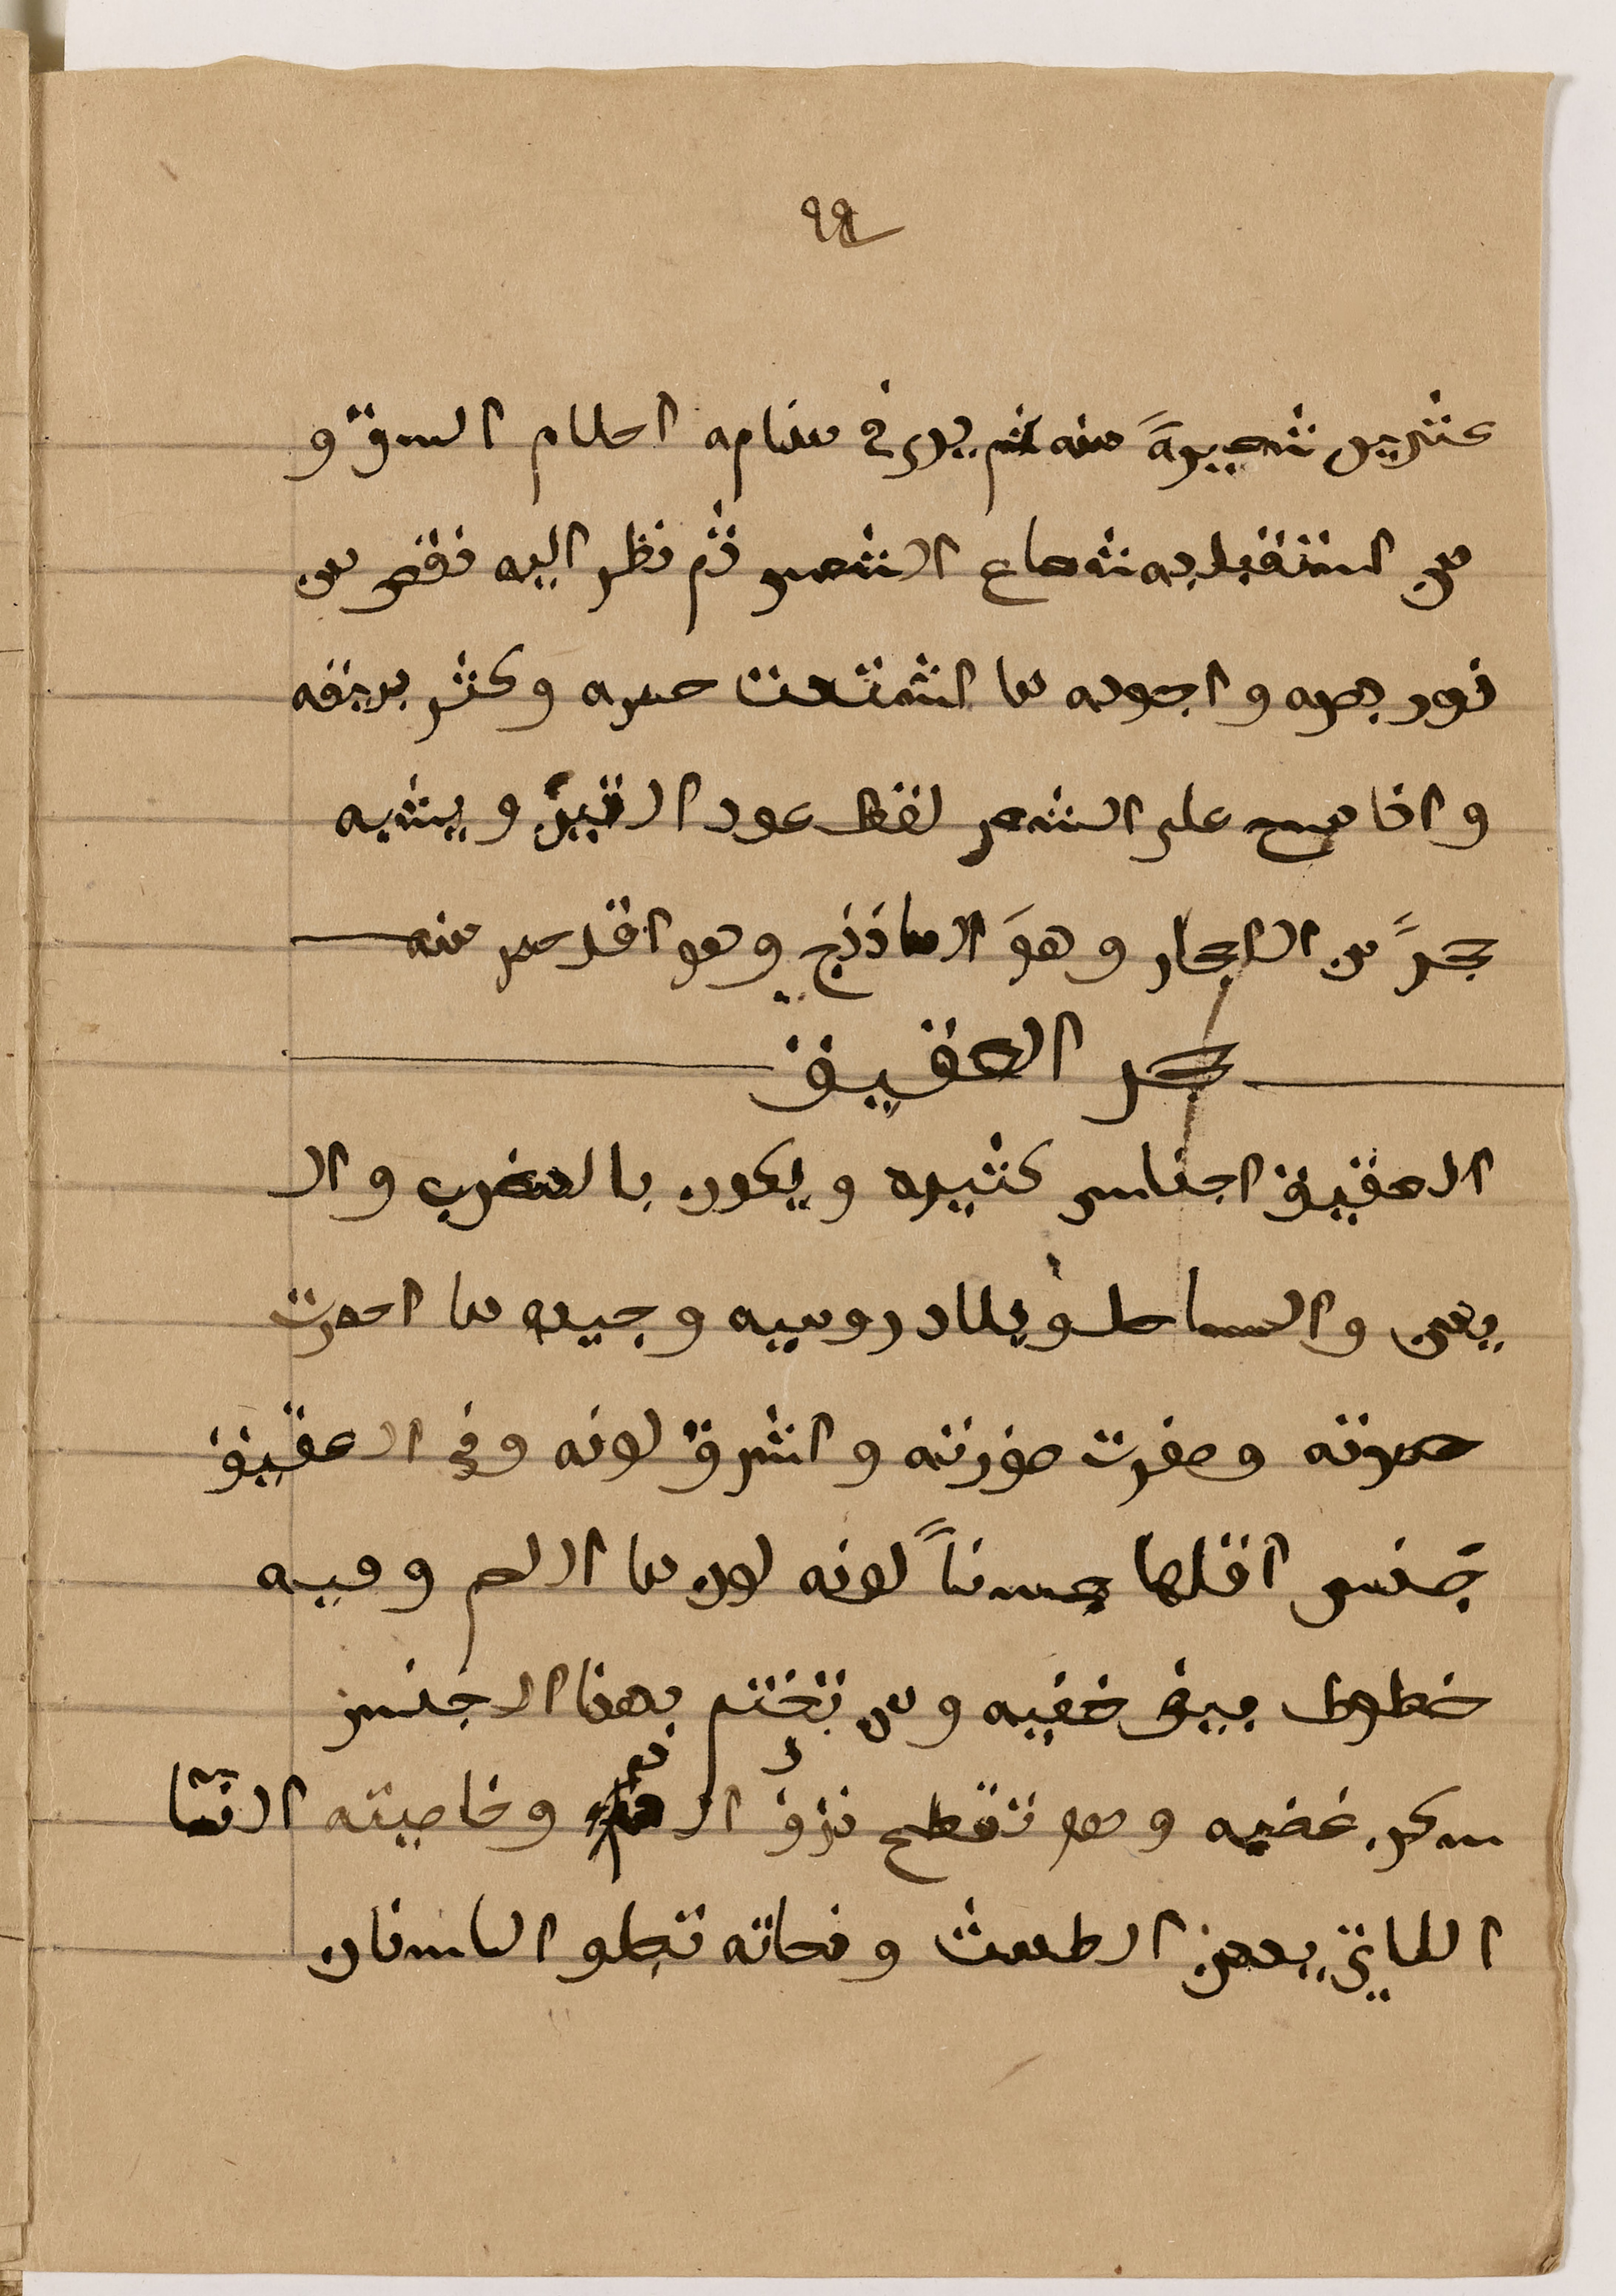 ٩٩
عشرين شعيرة منه لم يرى في منامه احلام السوق و
من استقبل به شعاع الشمس ثم نظر اليه نقص من
نور بصره واجوده ما اشتدت حمره وكثر بريقه
واذا مسح على الشعر لقط عود التبن ويشبه
حجرً من الاحجار وهوَ الماذنج وهو اقل حمر منه
حجر العقيق
العقيق اجناس كثيره ويكون بالمغرب وال
يمن والساحل وبلاد روميه وجيده ما احمرت
حمرته وصفرت صفرته واشرق لونه وفي العقيق
جنس اقلها حسناً لونه لون ما اللحم وفيه
خطوط بيض خفيه ومن تختم بهذا الجنس
سكن غضبه وهو تقطع نزف الدم وخاصيته النسا
اللاتي يدمن الطمث ونحاته تجلو الاسنان